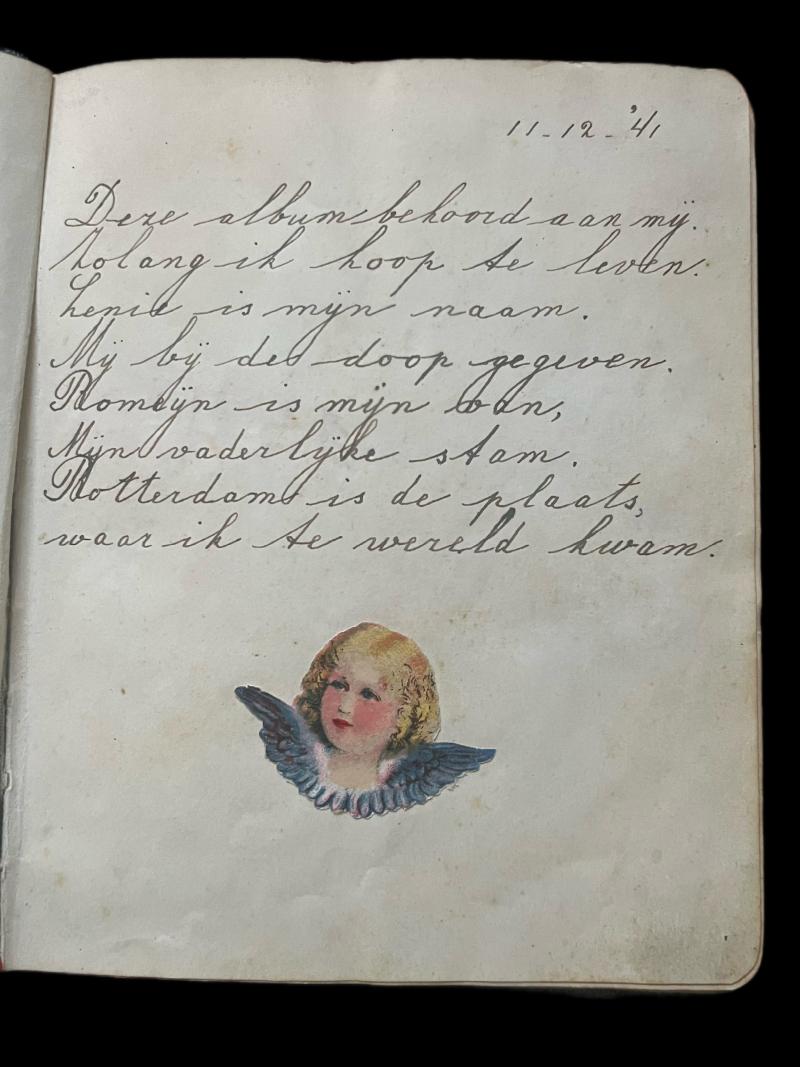 11-12-'41
Deze album behoord aan mij.
Zolang ik hoop te leven.
Lenie is mijn naam.
Mij bij de doop gegeven.
Romeijn is mijn van,
Mijn vaderlijke stam.
Rotterdam is de plaats,
waar ik te wereld kwam.